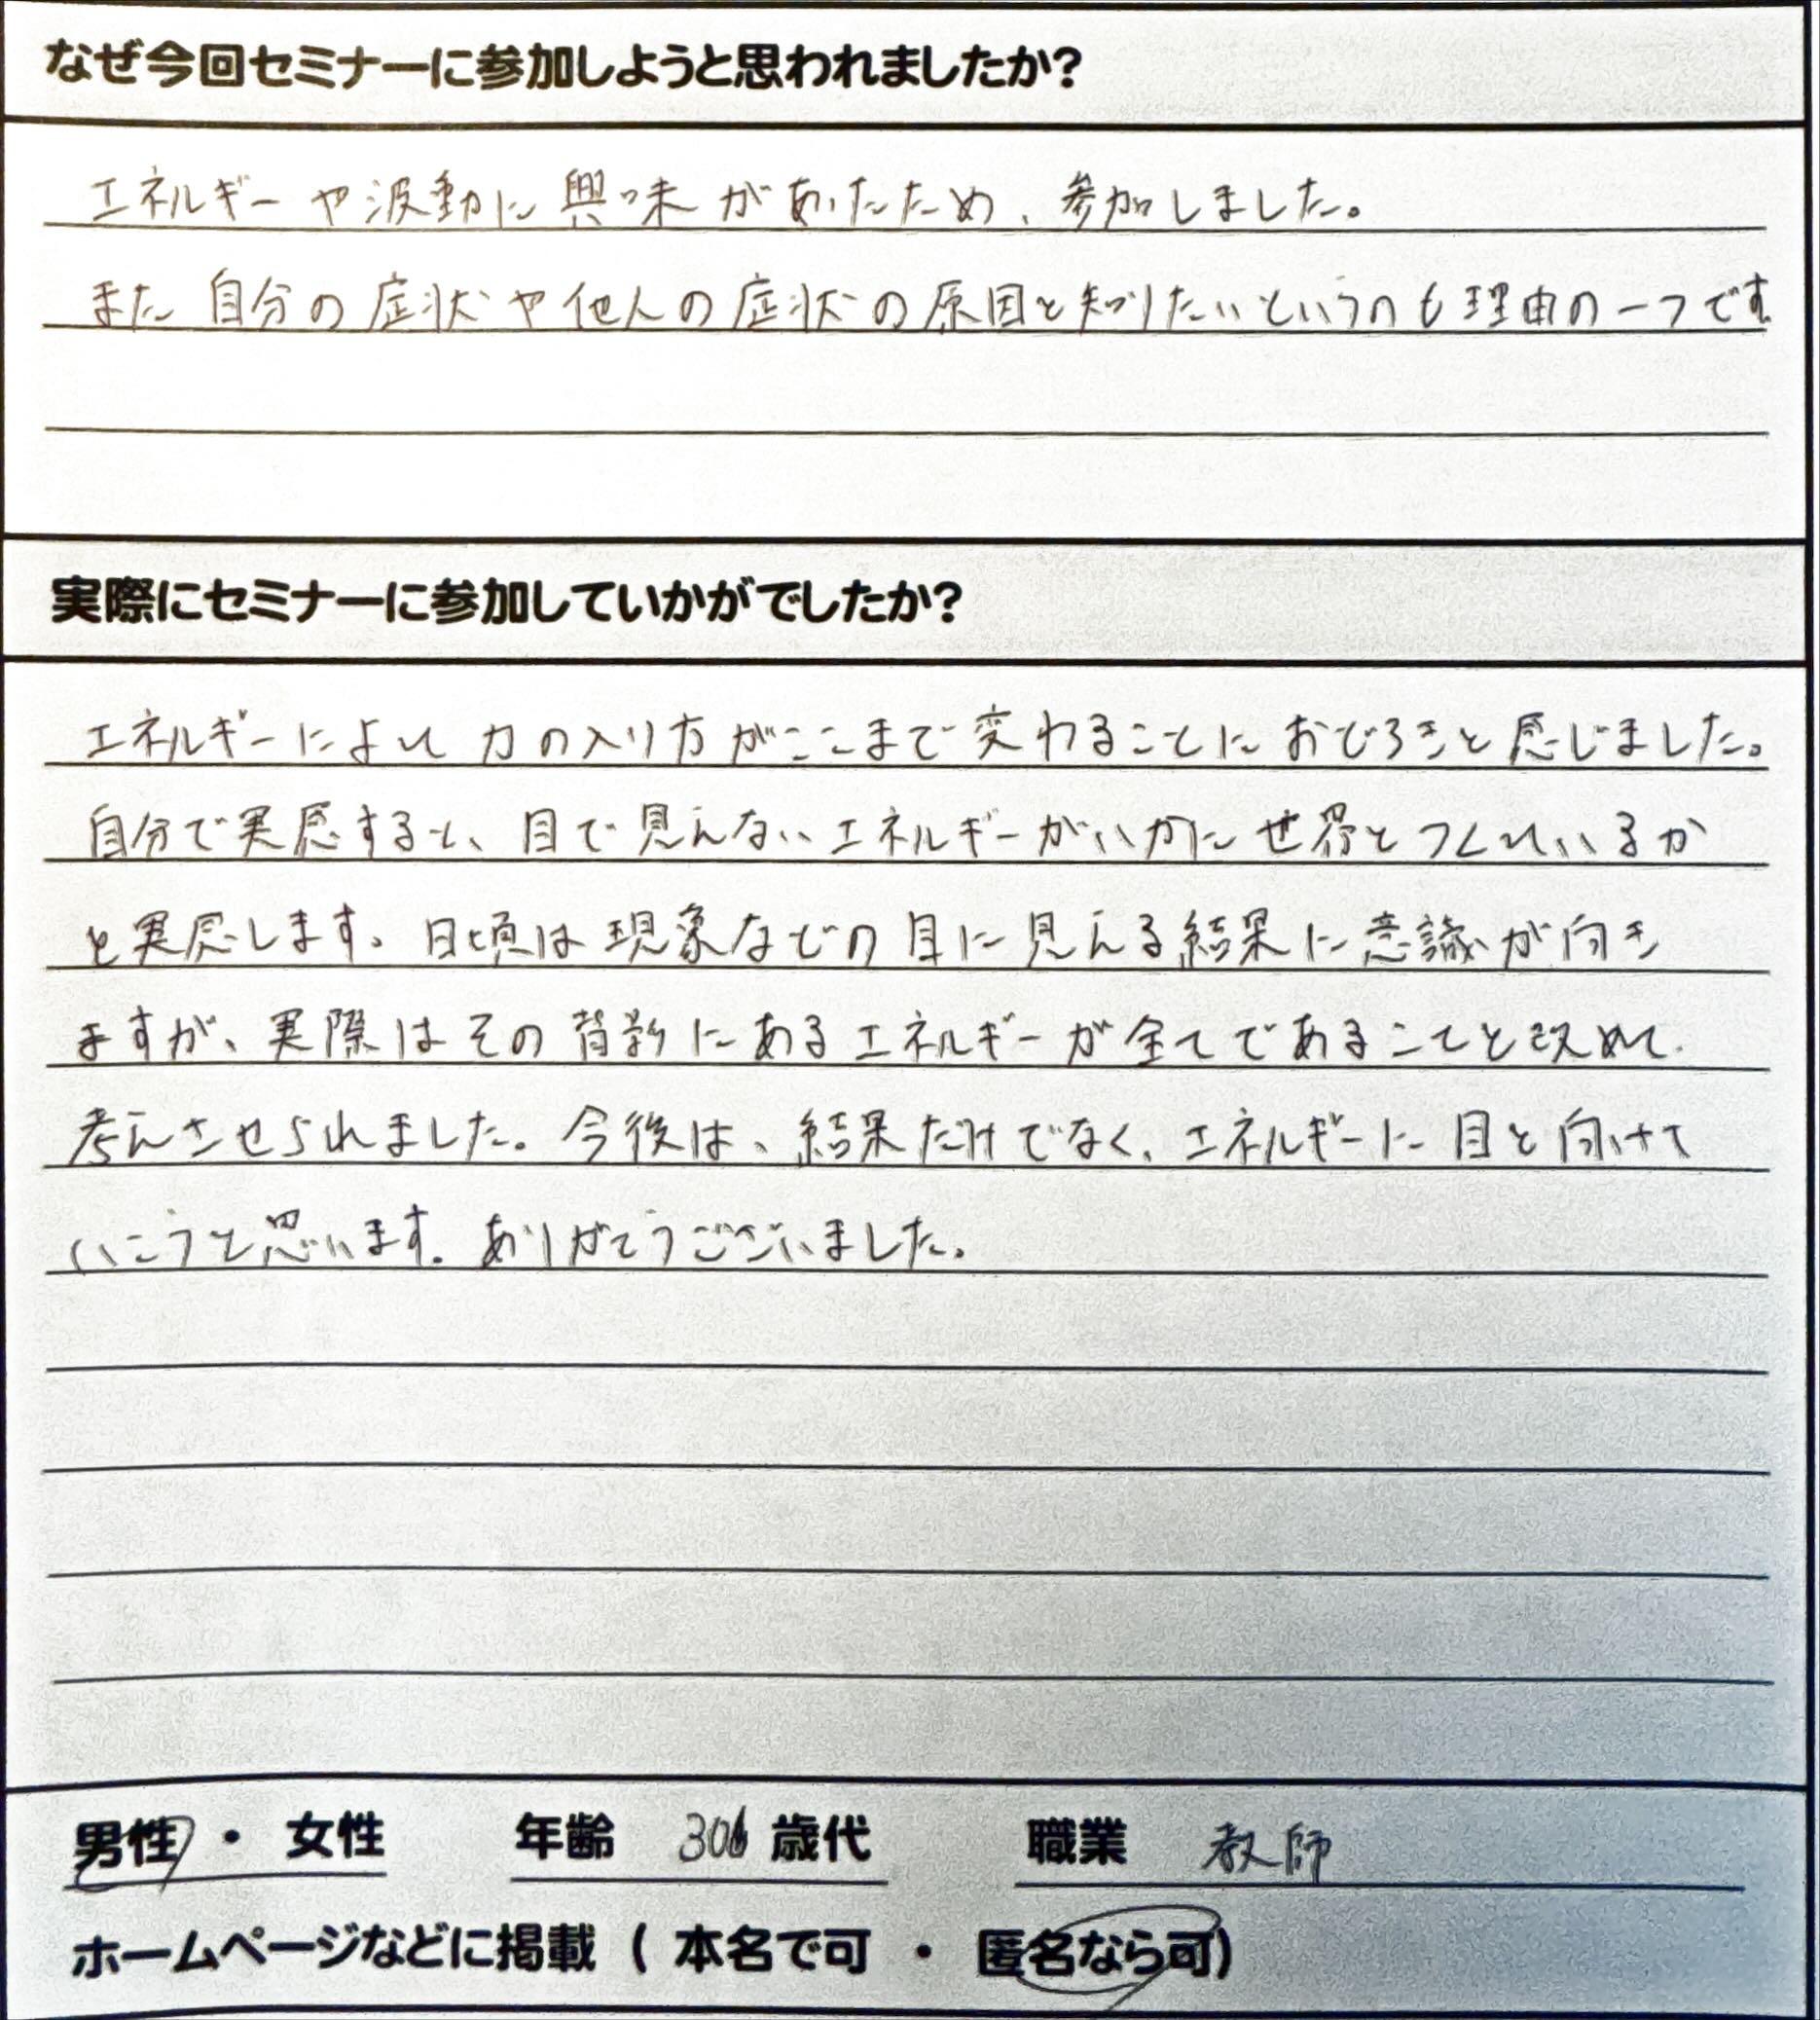 なぜ今回セミナーに参加しようと思われましたか?
エネルギーや波動に興味があったため、参加しました。
また自分の症状や他人の症状の原因を知りたいというのも理由の一つです
実際にセミナーに参加していかがでしたか?
エネルギーによって力の入り方がここまで変わることにおどろきを感じました。
自分で実感すると、目で見えないエネルギーがいかに世界をつくっているか
を実感します。日頃は現象などの目に見える結果に意識が向き
ますが、実際はその背景にあるエネルギーが全てであることを改めて
考えさせられました。今後は、結果だけでなく、エネルギーに目を向けて
いこうと思います。ありがとうございました。
男性 ・ 女性 年齢 30 歳代 職業 教師
ホームページなどに掲載 ( 本名で可 ・ 匿名なら可)